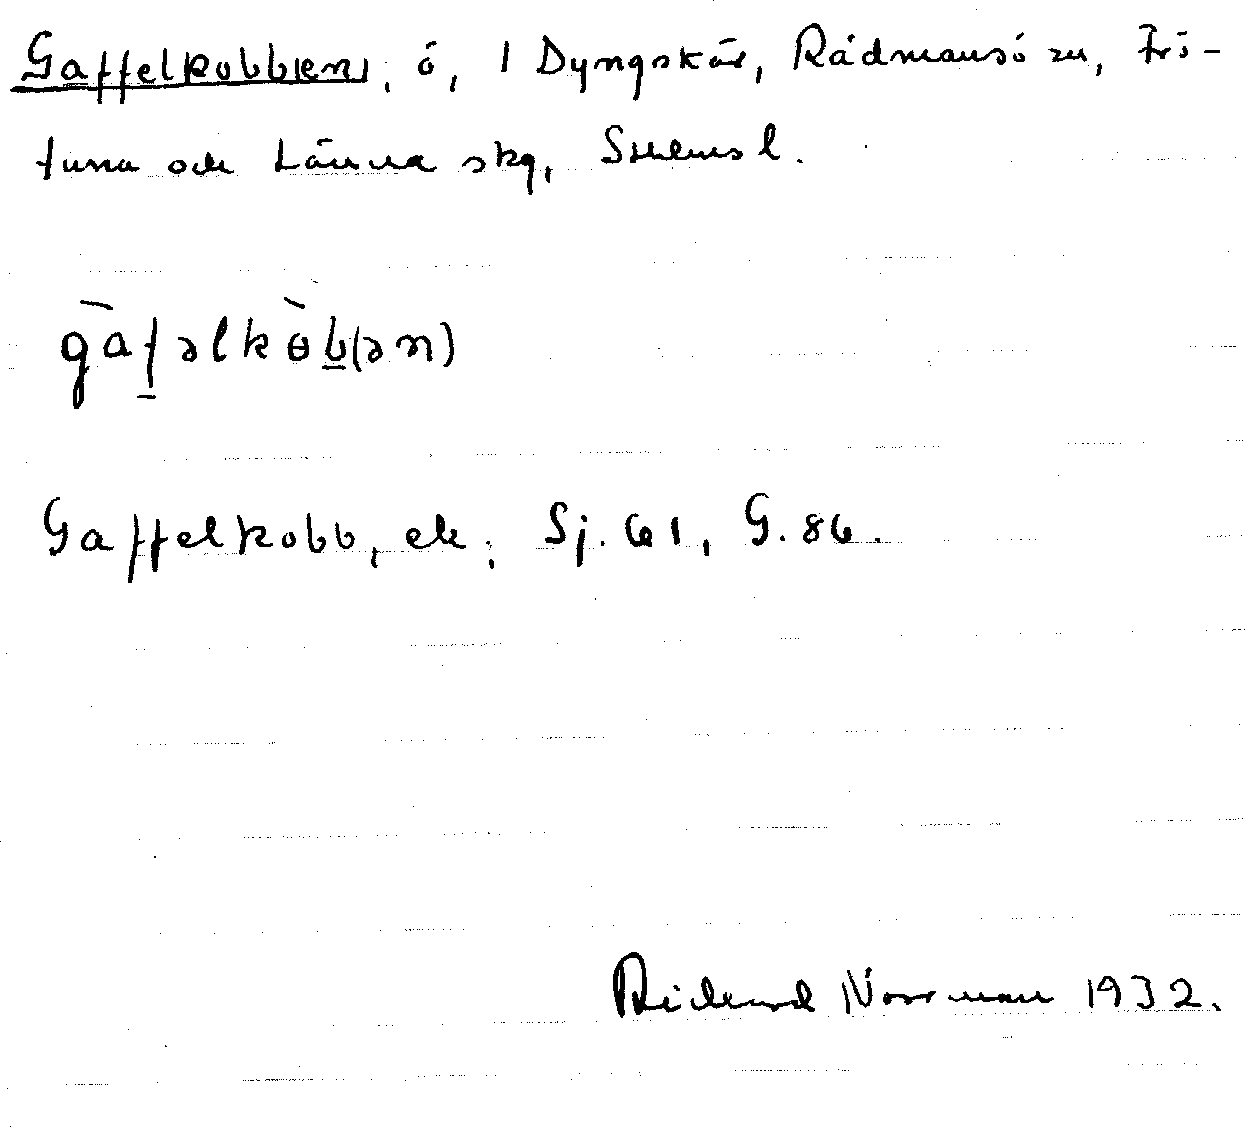 Gaffelkobb(en), ö, i Dyngskär, Rådmansö sn, Frö-
tuna och Länna skg, Sthlms l.
gàfəlkòb(ən)
Gaffelkobb, ek, Sj. 61, G. 86.
Rickard Norrman 1932.